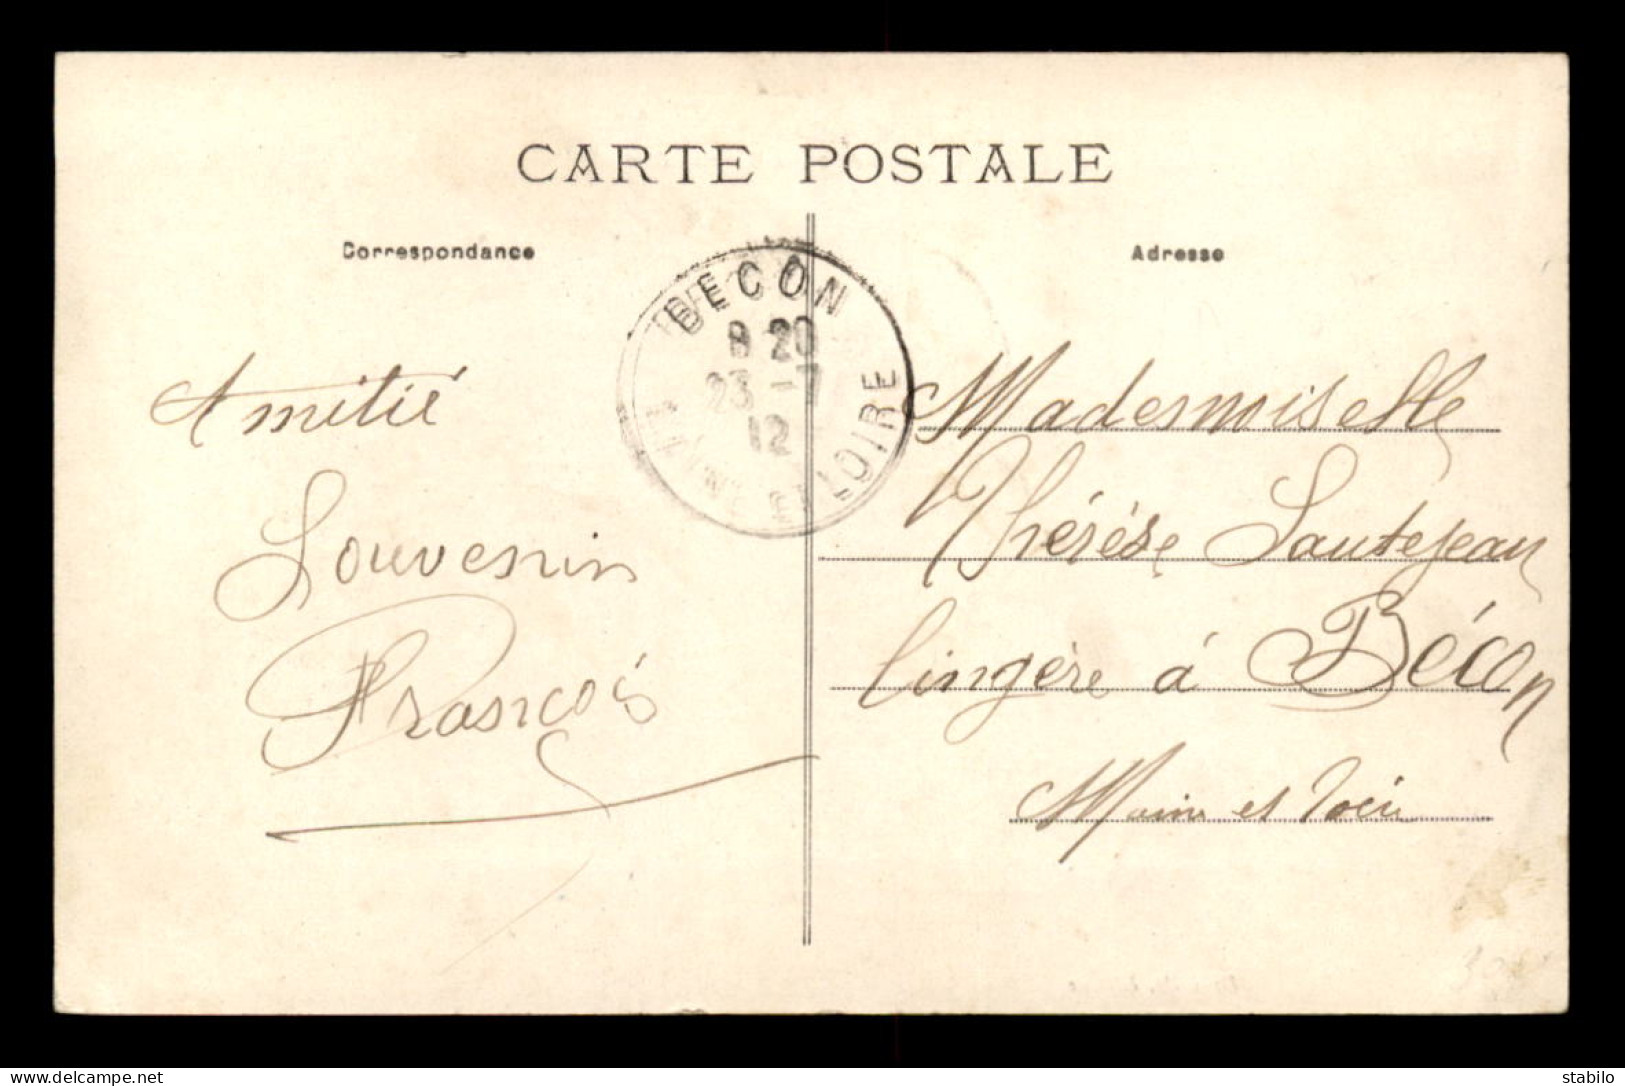 CARTE POSTALE
Correspondance
Adresse
BECON
8 20
23 -7
12
MAINE ET LOIRE
Amitié
Souvenir
François
Mademoiselle
Thérèse Sautejeau
lingère à Bécon
Maine et Loire
www.delcampe.net
stabilo